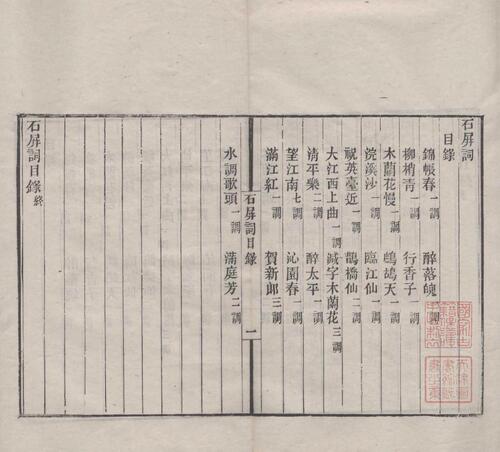 石屏詞
目錄
錦帳春一調 醉落魄一調
柳梢青一調 行香子一調
木蘭花慢一調 鷓鴣天一調
浣溪沙一調 臨江仙一調
祝英臺近一調 鵲橋仙二調
大江西上曲一調 減字木蘭花三調
清平樂二調 醉太平一調
望江南七調 沁園春一調
滿江紅一調 賀新郎三調
水調歌頭一調 滿庭芳二調
石屏詞目錄 一
石屏詞目錄終